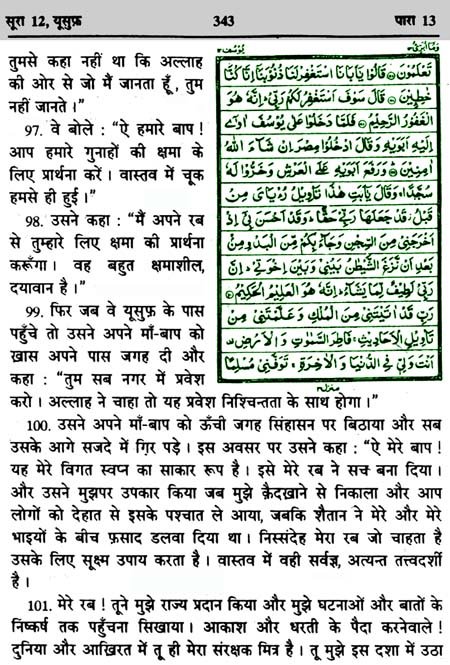 सूरा 12, यूसुफ़ 343 पारा 13
तुमसे कहा नहीं था कि अल्लाह
की ओर से जो मैं जानता हूँ, तुम
नहीं जानते।"
97. वे बोले : "ऐ हमारे बाप!
आप हमारे गुनाहों की क्षमा के
लिए प्रार्थना करें। वास्तव में चूक
हमसे ही हुई।"
98. उसने कहा : "मैं अपने रब
से तुम्हारे लिए क्षमा की प्रार्थना
करूँगा। वह बहुत क्षमाशील,
दयावान है।"
99. फिर जब वे यूसुफ़ के पास
पहुँचे तो उसने अपने माँ-बाप को
ख़ास अपने पास जगह दी और
कहा : "तुम सब नगर में प्रवेश
करो। अल्लाह ने चाहा तो यह प्रवेश निश्चिन्तता के साथ होगा।"
100. उसने अपने माँ-बाप को ऊँची जगह सिंहासन पर बिठाया और सब
उसके आगे सजदे में गिर पड़े। इस अवसर पर उसने कहा : "ऐ मेरे बाप!
यह मेरे विगत स्वप्न का साकार रूप है। इसे मेरे रब ने सच बना दिया।
और उसने मुझपर उपकार किया जब मुझे क़ैदख़ाने से निकाला और आप
लोगों को देहात से इसके पश्चात ले आया, जबकि शैतान ने मेरे और मेरे
भाइयों के बीच फ़साद डलवा दिया था। निस्संदेह मेरा रब जो चाहता है
उसके लिए सूक्ष्म उपाय करता है। वास्तव में वही सर्वज्ञ, अत्यन्त तत्त्वदर्शी
है।
101. मेरे रब! तूने मुझे राज्य प्रदान किया और मुझे घटनाओं और बातों के
निष्कर्ष तक पहुँचना सिखाया। आकाश और धरती के पैदा करनेवाले!
दुनिया और आख़िरत में तू ही मेरा संरक्षक मित्र है। तू मुझे इस दशा में उठा
يُوسُف وَمَآ أُبَرِّئُ
تَعْلَمُونَ قَالُوا يَا أَبَانَا اسْتَغْفِرْ لَنَا ذُنُوبَنَا إِنَّا كُنَّا
خٰطِـِٕينَ قَالَ سَوْفَ أَسْتَغْفِرُ لَكُمْ رَبِّي إِنَّهُ هُوَ
الْغَفُورُ الرَّحِيمُ فَلَمَّا دَخَلُوا عَلَى يُوسُفَ اٰوٰٓى
إِلَيْهِ أَبَوَيْهِ وَقَالَ ادْخُلُوا مِصْرَ إِنْ شَاءَ اللّٰهُ
اٰمِنِينَ وَرَفَعَ أَبَوَيْهِ عَلَى الْعَرْشِ وَخَرُّوا لَهُ
سُجَّدًا وَقَالَ يٰٓأَبَتِ هٰذَا تَأْوِيلُ رُءْيَايَ مِنْ
قَبْلُ قَدْ جَعَلَهَا رَبِّي حَقًّا وَقَدْ أَحْسَنَ بِي إِذْ
أَخْرَجَنِي مِنَ السِّجْنِ وَجَاءَ بِكُمْ مِنَ الْبَدْوِ مِنْ
بَعْدِ أَنْ نَزَغَ الشَّيْطٰنُ بَيْنِي وَبَيْنَ إِخْوَتِي إِنَّ
رَبِّي لَطِيفٌ لِمَا يَشَاءُ إِنَّهُ هُوَ الْعَلِيمُ الْحَكِيمُ
رَبِّ قَدْ اٰتَيْتَنِي مِنَ الْمُلْكِ وَعَلَّمْتَنِي مِنْ
تَأْوِيلِ الْأَحَادِيثِ فَاطِرَ السَّمٰوٰتِ وَالْأَرْضِ
أَنْتَ وَلِيِّ فِي الدُّنْيَا وَالْاٰخِرَةِ تَوَفَّنِي مُسْلِمًا